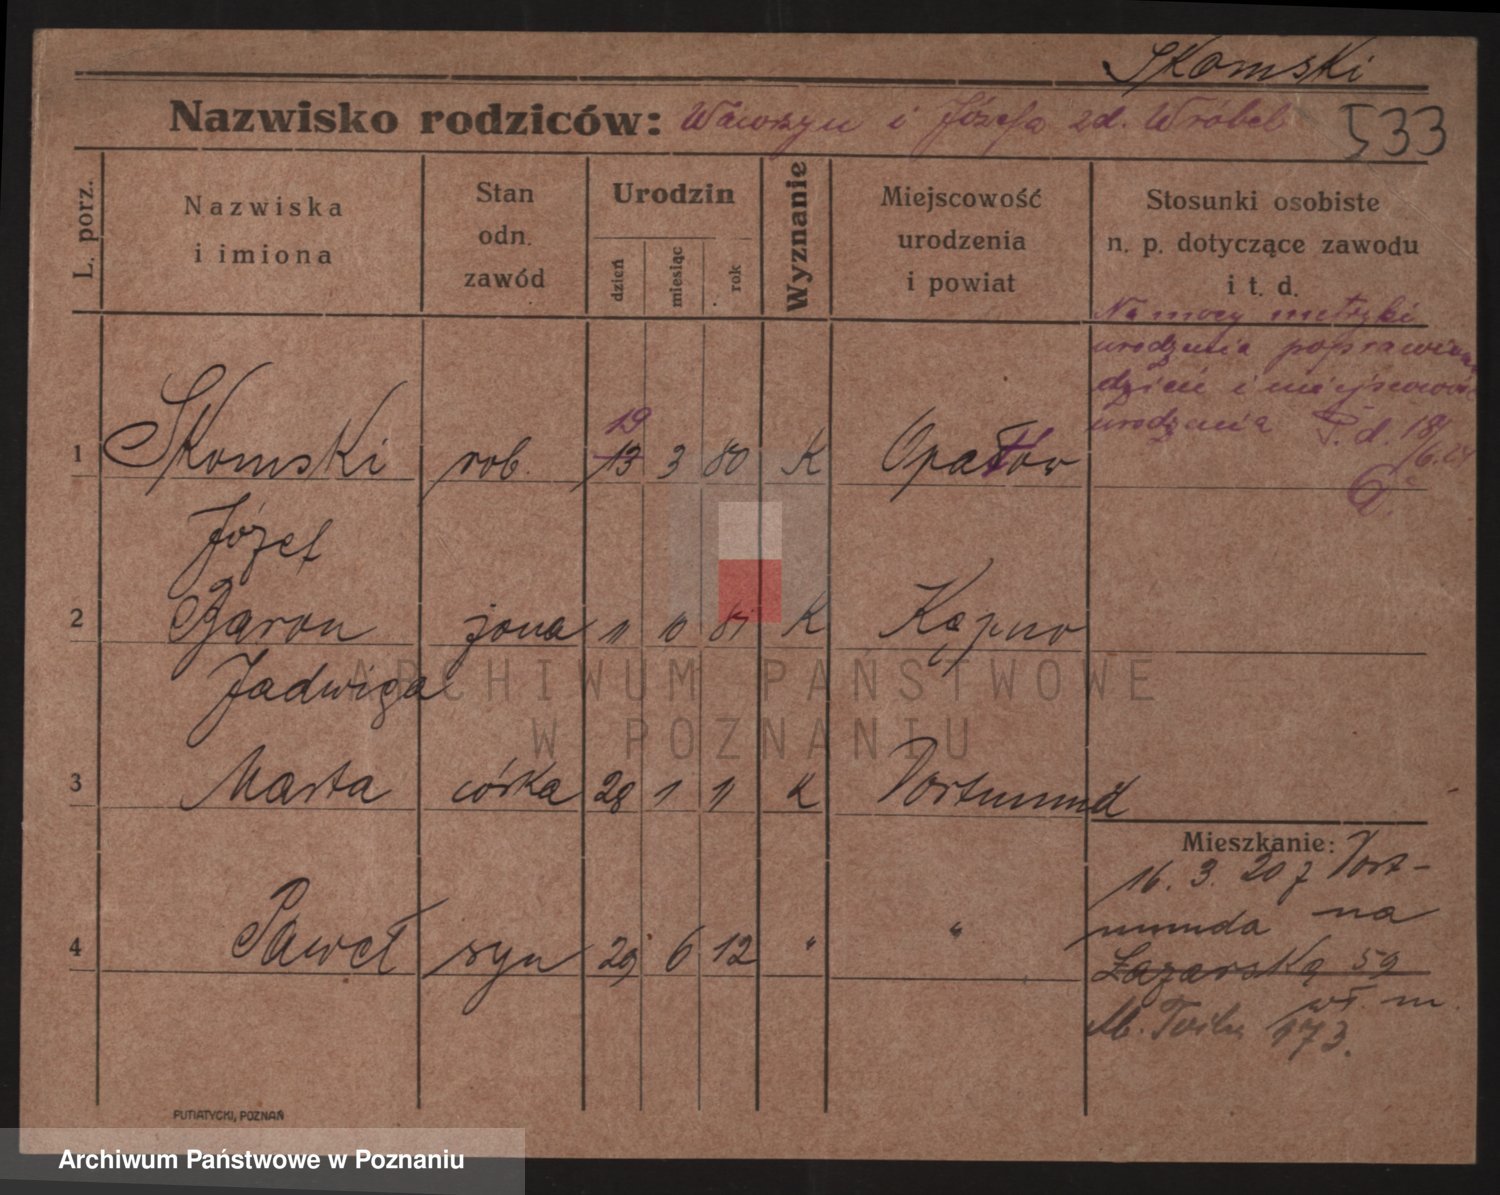 Skomski
Nazwisko rodziców: Wawrzyn i Józefa zd. Wróbel 533
L. porz.
Nazwiska
i imiona
Stan
odn.
zawód
Urodzin
dzień
miesiąc
rok
Wyznanie
Miejscowość
urodzenia
i powiat
Stosunki osobiste
n. p. dotyczące zawodu
i t. d.
Na mocy metryki
urodzenia poprawiono
dzień i miejscowość
urodzenia P. d. 18/
6.24
19
1 Skomski rob. 13 3 80 K Opatów
Józef
2 Baron żona 11 10 87 K Kępno
Jadwiga
3 Marta córka 28 1 11 K Dortmund
4 Paweł syn 29 6 12 " "
Mieszkanie:
16. 3. 20 z Dort-
munda na
Łazarską 59
wł. m.
173.
PUTIATYCKI, POZNAŃ
ARCHIWUM PAŃSTWOWE
W POZNANIU
Archiwum Państwowe w Poznaniu